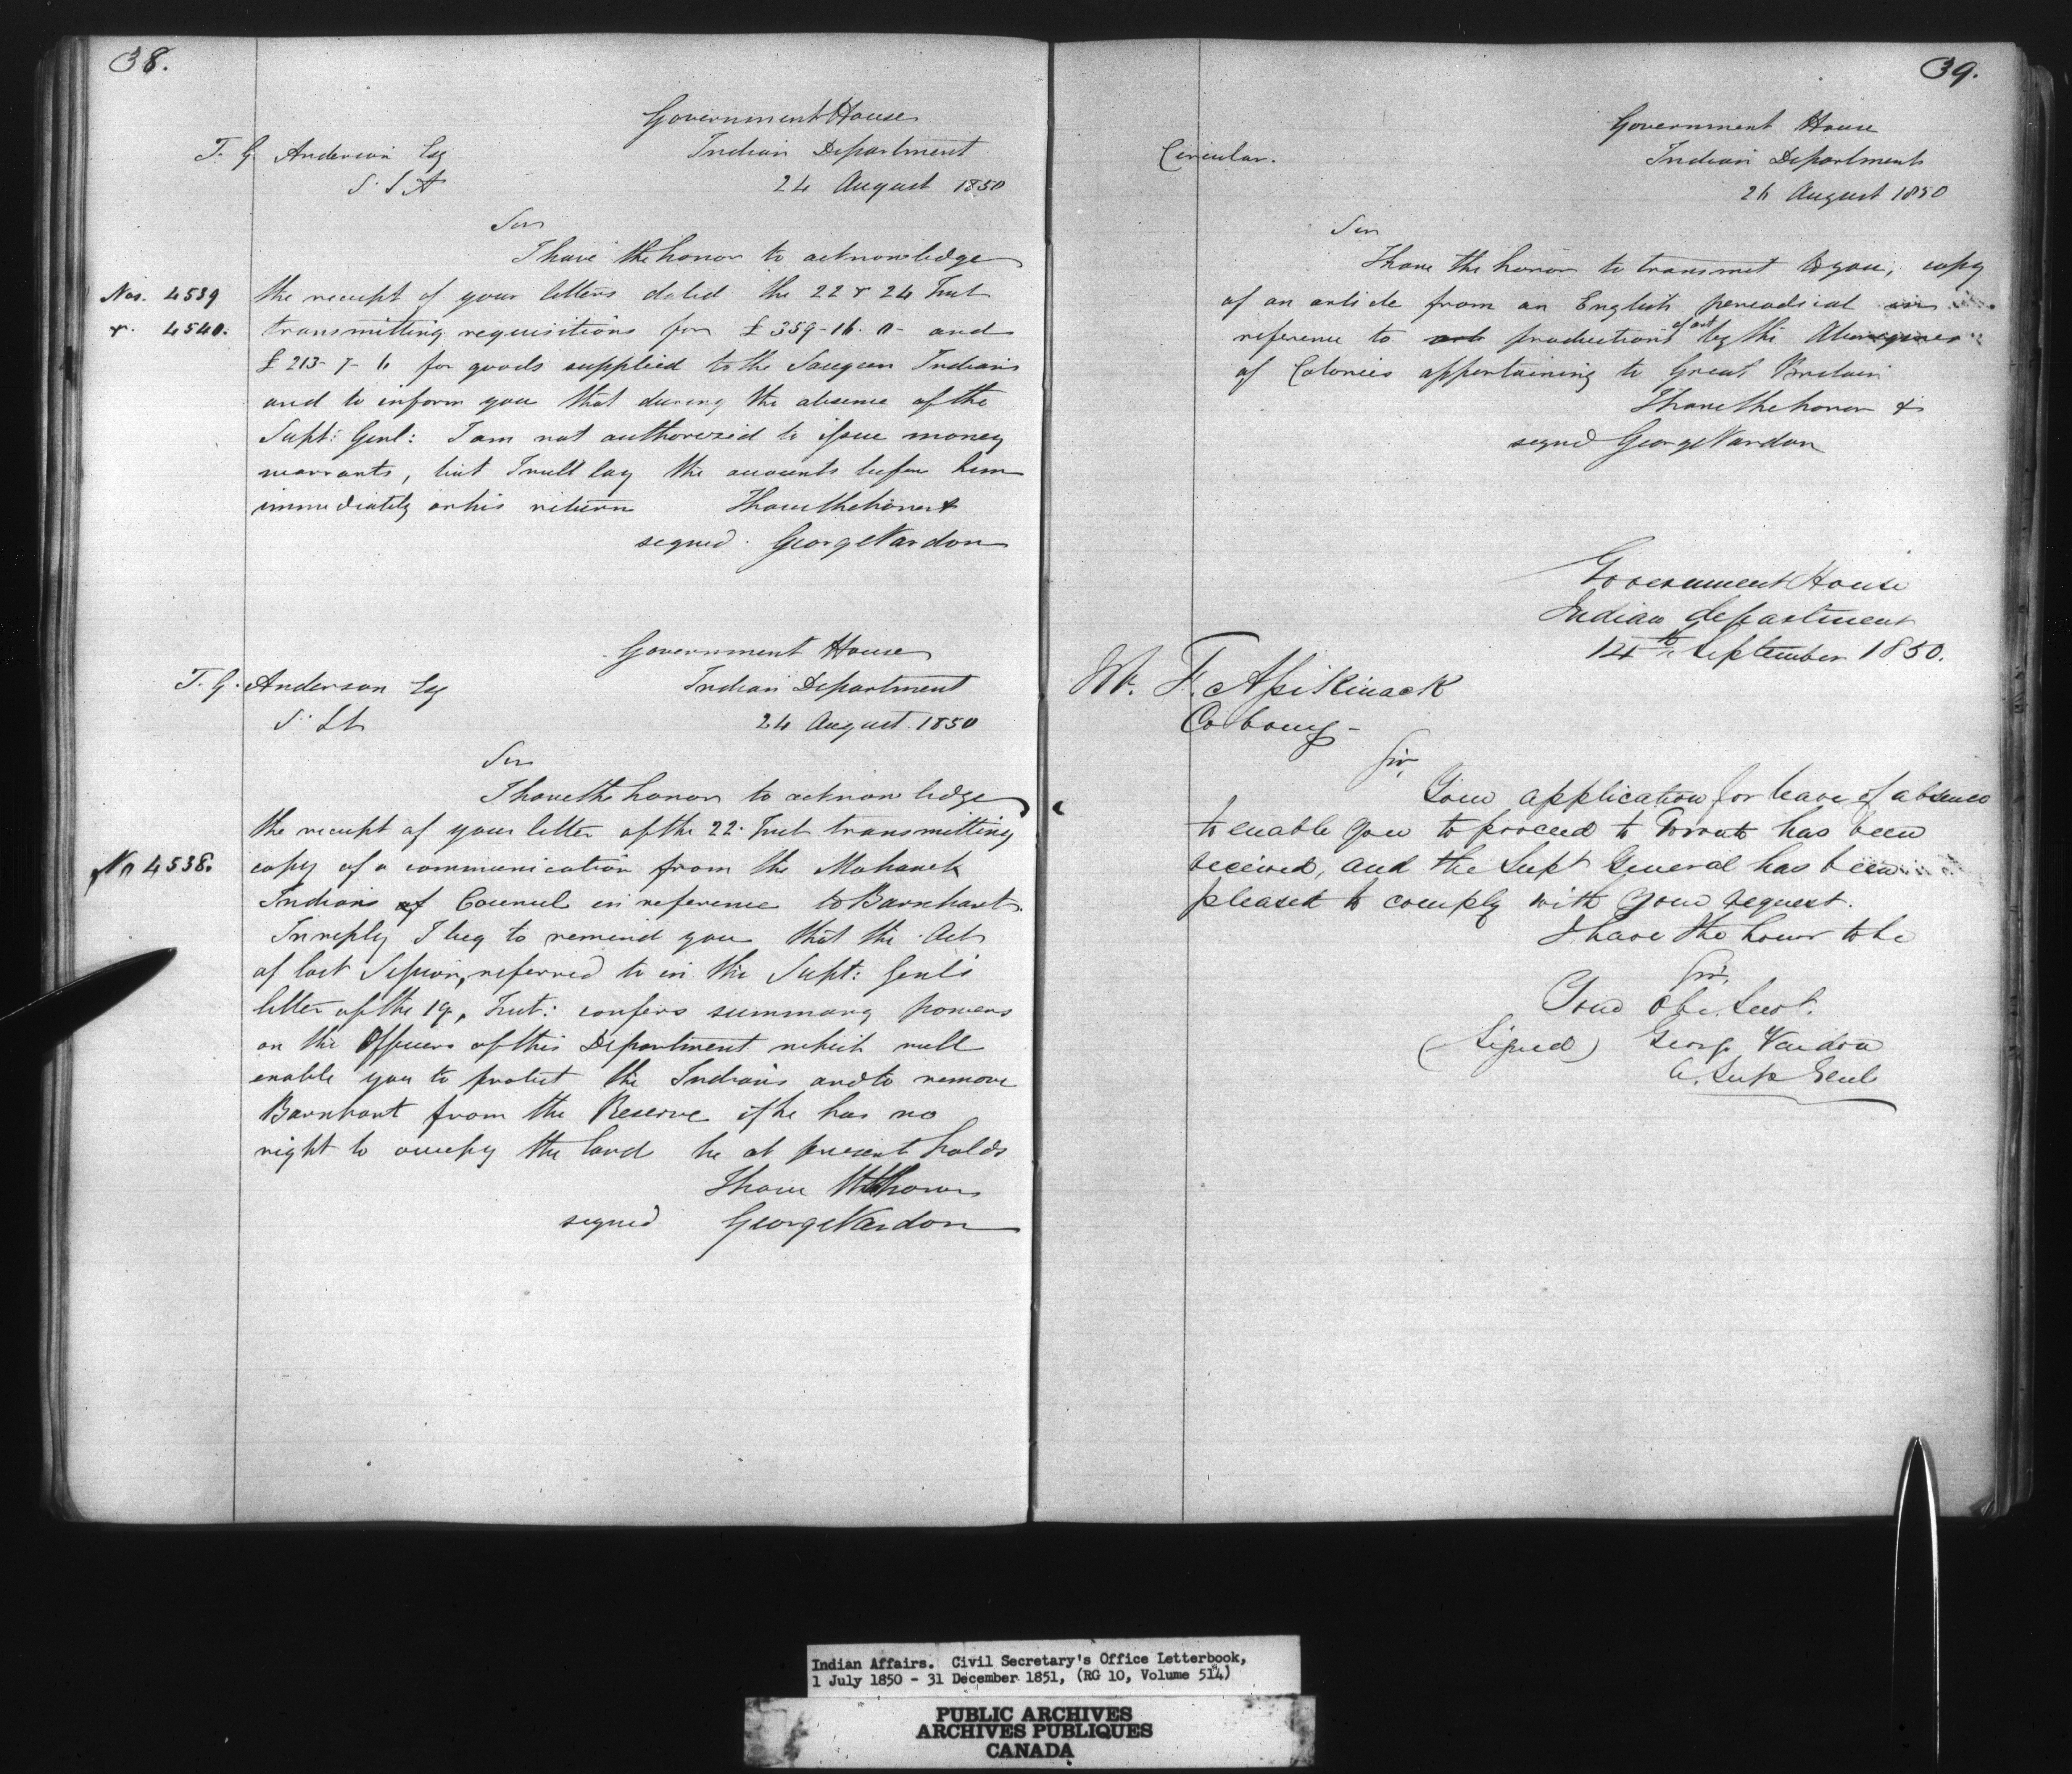 38.
Government House
T. G. Anderson Esq
Indian Department
S. S A
24 August 1850
Sir
I have the honor to acknowledge
Nos. 4539
the receipt of your letters dated the 22 & 24 Inst
& 4540.
transmitting requisitions for £ 359-16. 0- and
£ 213- 7- 6 for goods supplied to the Saugeen Indians
and to inform you that during the absence of the
Supt: Genl: I am not authorized to issue money
warrants, but I will lay the accounts before him
immediately on his return I have the honor &
signed. George Vardon
Government House
T. G. Anderson Esq
Indian Department
24 August 1850
Sir
I have the honor to acknowledge
the receipt of your letter of the 22. Inst transmitting
No 4538.
copy of a communication from the Mohawk
Indians of Council in reference to Barnhart.
In reply I beg to remind you that the Act
of last Session, referred to in the Supt: Genl's
letter of the 19, Inst: confers summary powers
on the Officers of this Department which will
enable you to protect the Indians and to remove
Barnhart from the Reserve if he has no
right to occupy the land he at present holds
I have the honor
signed George Vardon
39.
Government House
Circular.
Indian Department
26 August 1850
Sir
I have the honor to transmit to you, copy
of an article from an English periodical in
reference to productions of art by the Aborigines
of Colonies appertaining to Great Britain
I have the honor &
signed George Vardon
Government House
Indian department
14th September 1850.
Mr. F. Assikinack
Cobourg-
Sir,
Your application for leave of absence
to enable you to proceed to Toronto has been
received, and the Supt General has been
pleased to comply with your request.
I have the honor to be
Sir,
Your Obe. Servt.
(Signed) George Vardon
A. Supt Genl
Indian Affairs. Civil Secretary's Office Letterbook,
1 July 1850 - 31 December 1851, (RG 10, Volume 514)
PUBLIC ARCHIVES
ARCHIVES PUBLIQUES
CANADA